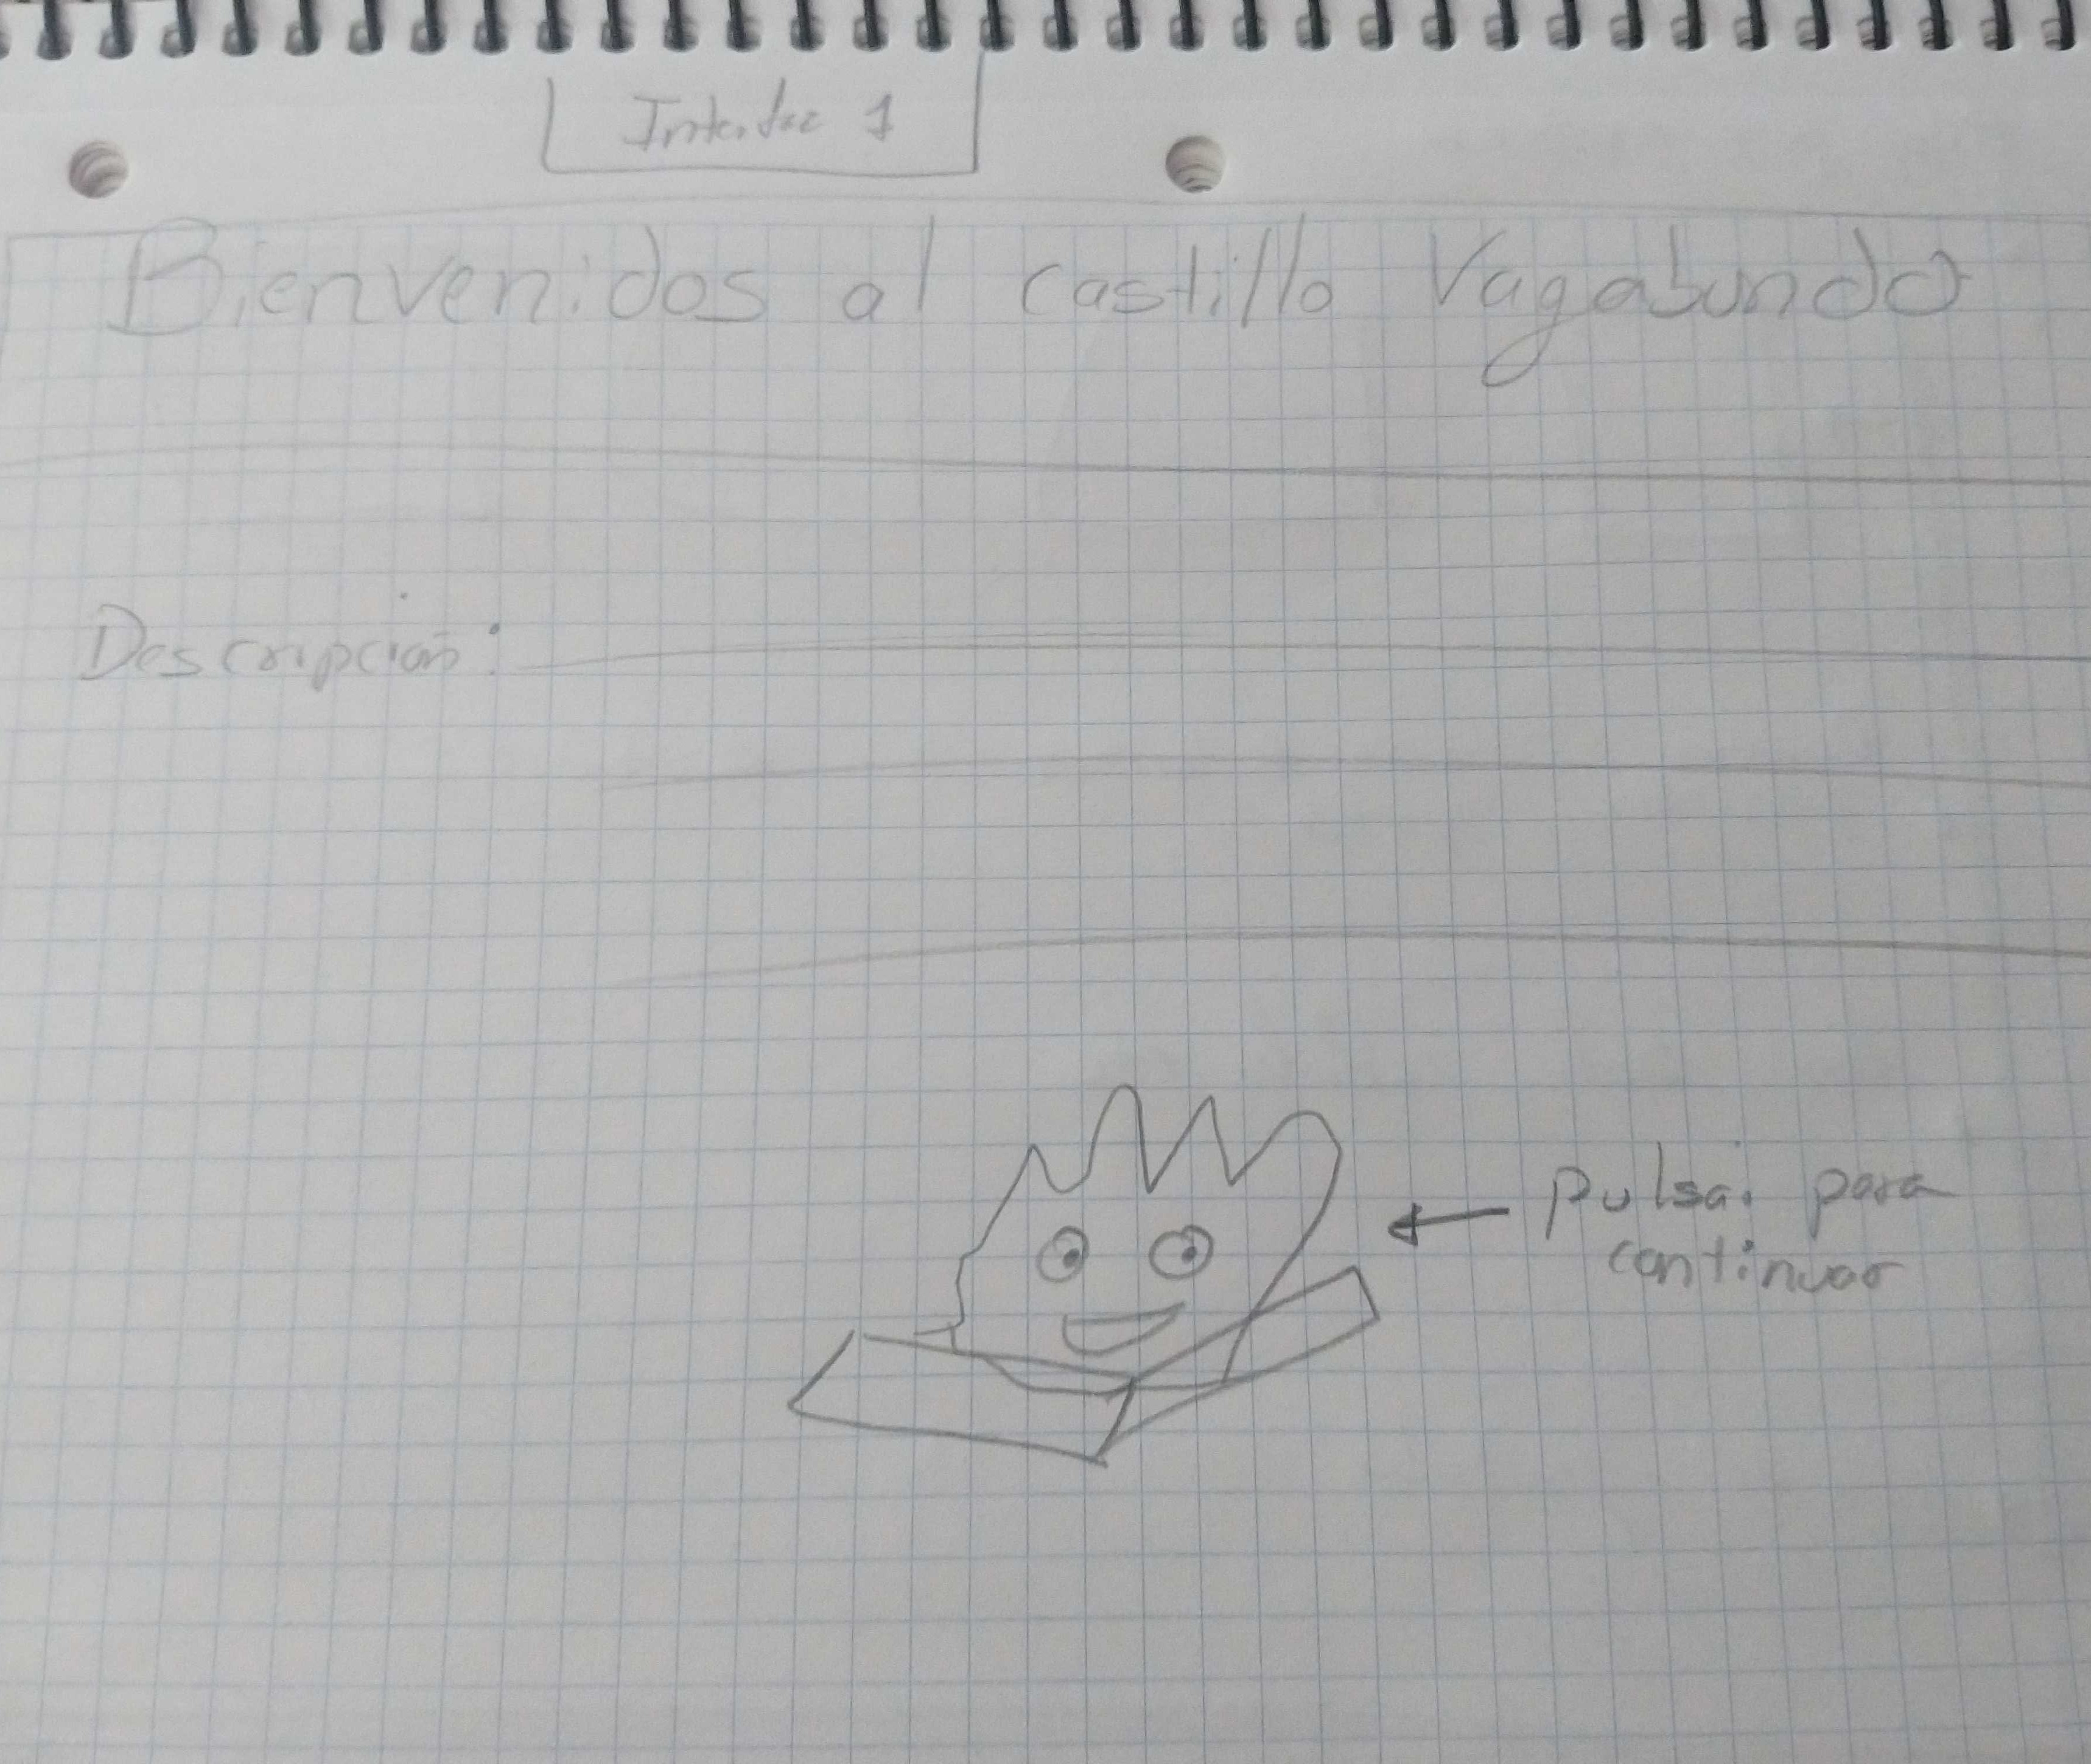 Interfaz 1
Bienvenidos al castillo Vagabundo
Descripción:
pulsar para
continuar